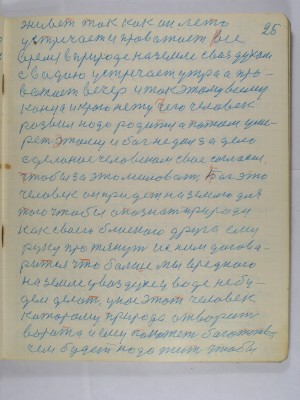 25
живет так как он лето
встречает и провожает все
время в природе на земле в воздухе
в воде он встречает утро а про-
вожает вечер и так этому всему
конца и края нету Чего человек
развил надо родится а потом уме-
рет этому и бог не дал за дело
сделаное человеком свое согласие
чтобы за это миловать Бог это
человек он придет на землю для
того чтобы опознать природу
как своего близкого друга ему
руку протянут и с ним догово-
рится что больше мы вредного
на земле в воздухе в воде не бу-
дем делать, у нас этот человек
которому природа откроет
ворота и ему поможет богатство
чем будет надо жить чтобы